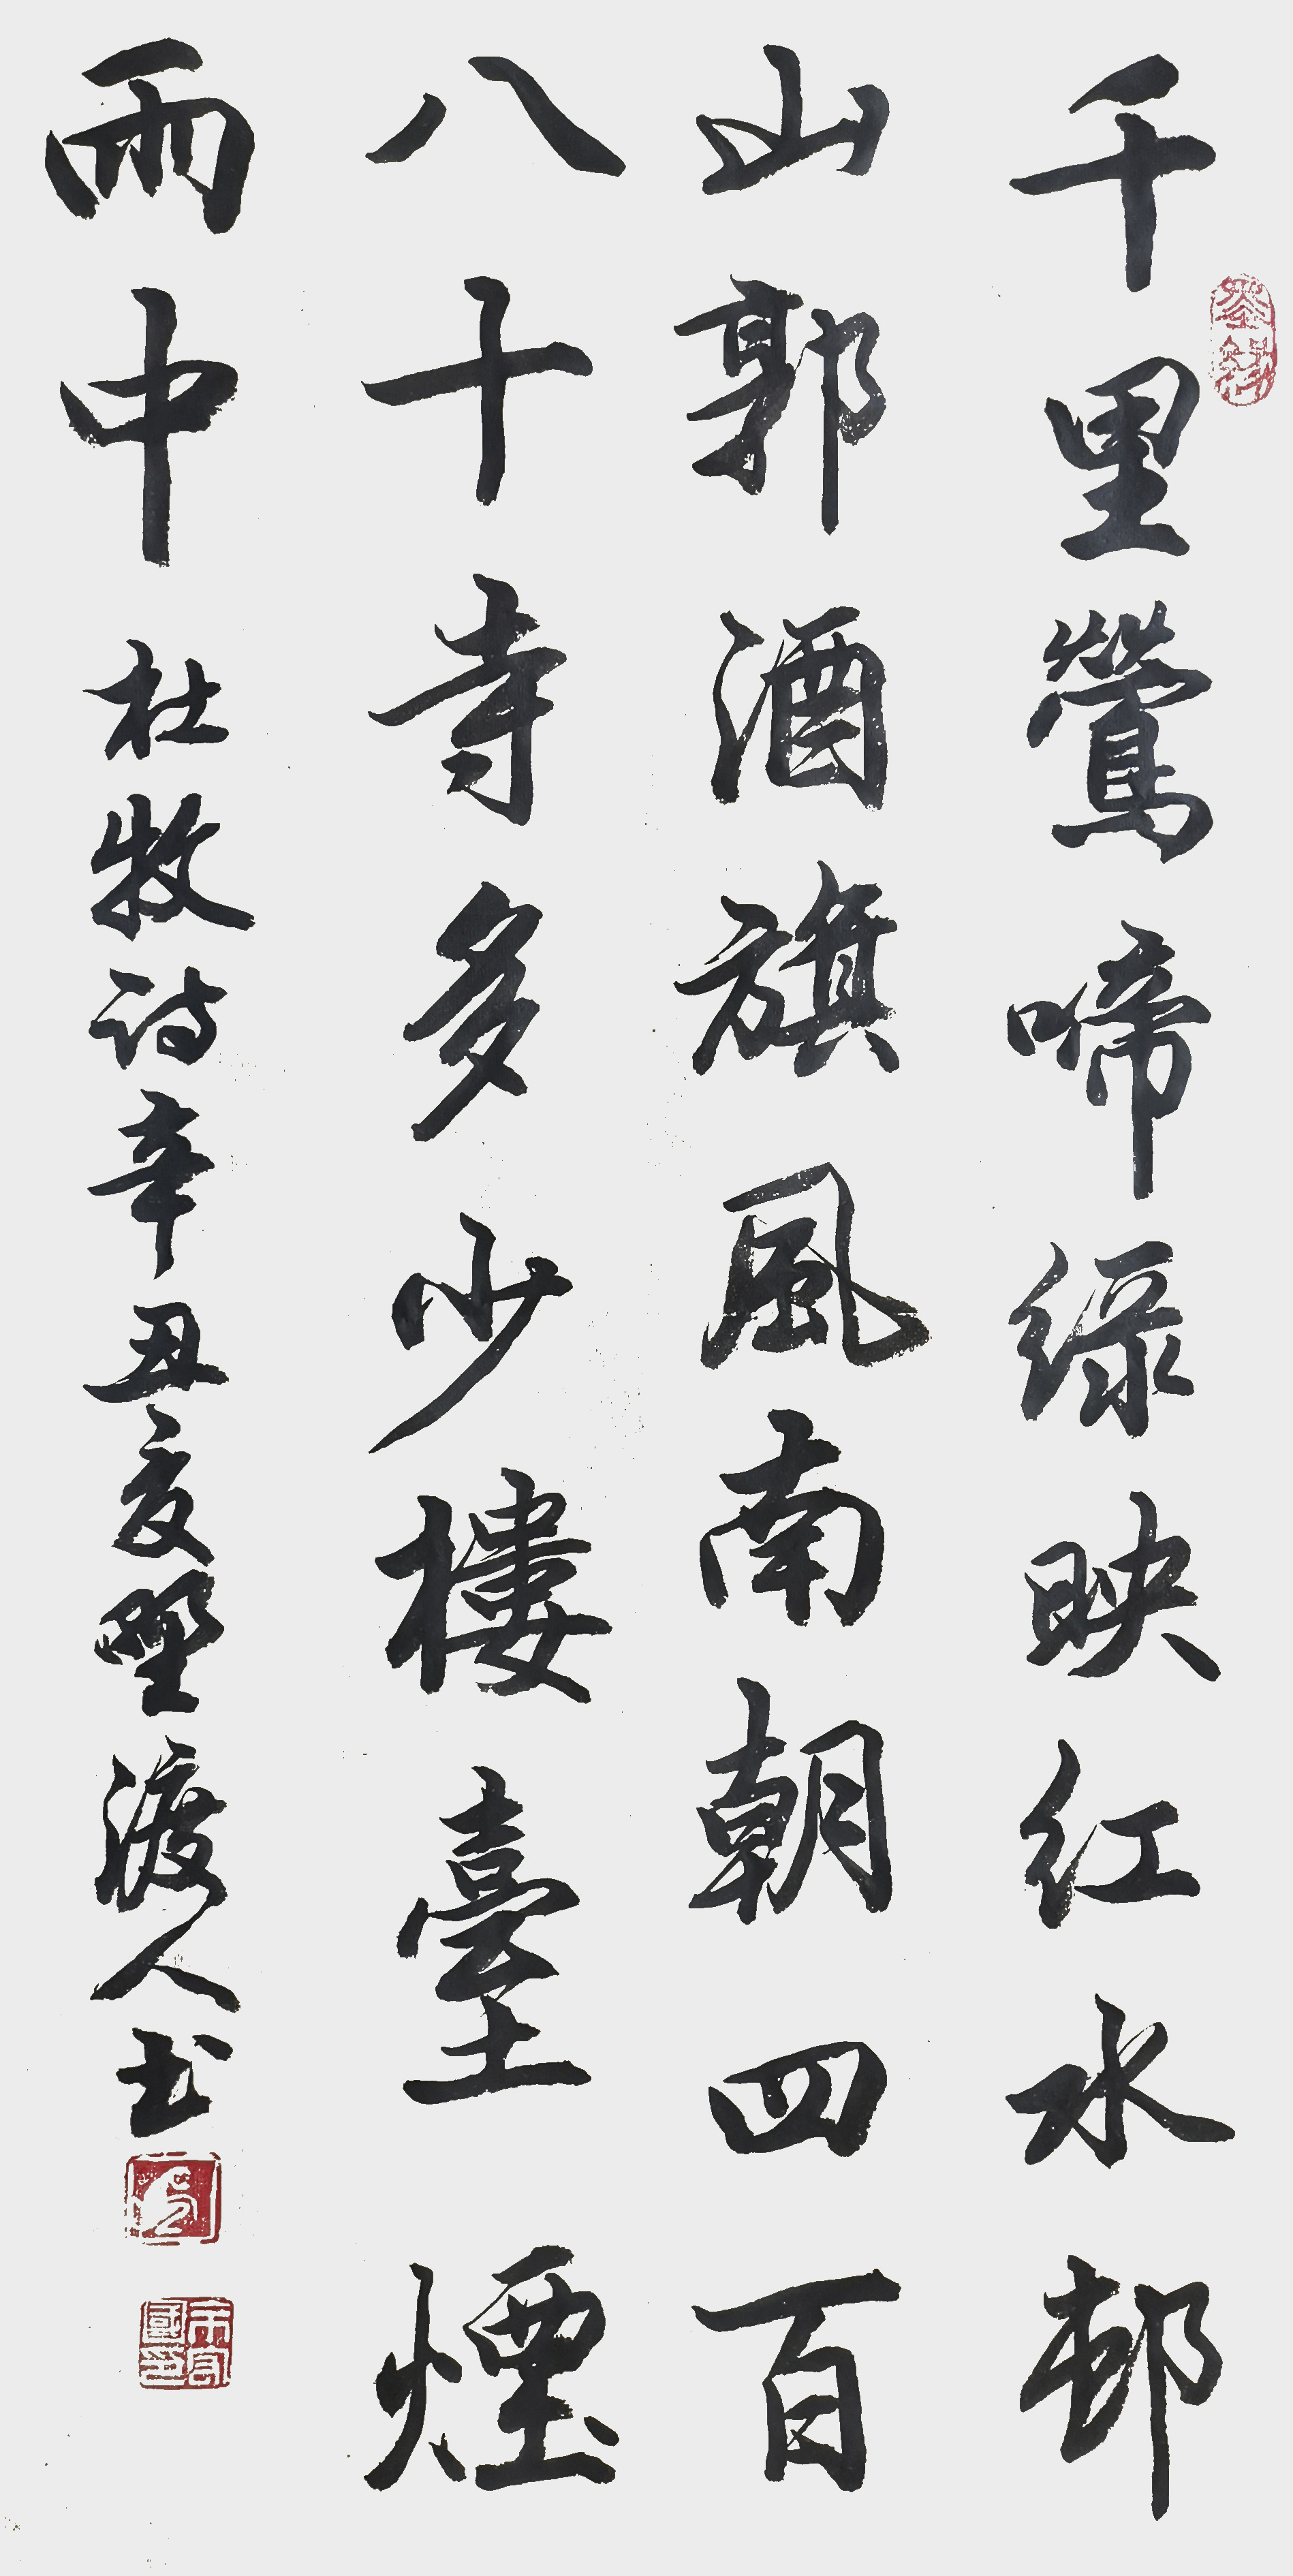 千里鶯啼绿映红水邨
山郭酒旗風南朝四百
八十寺多少樓臺煙
雨中 杜牧诗辛丑夏野渡人书